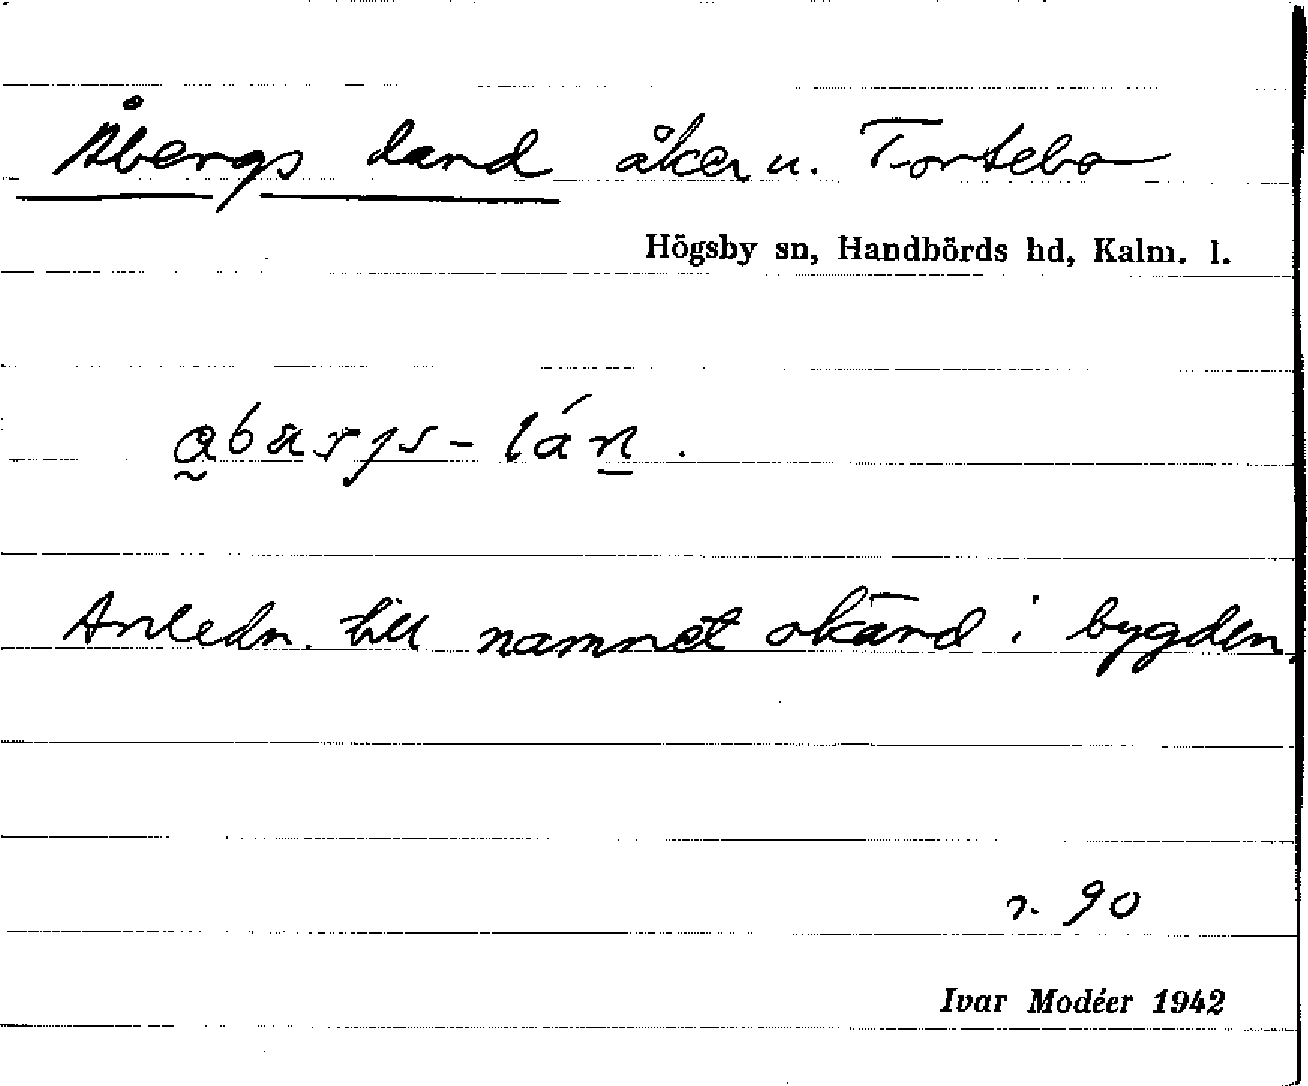 Åbergs land åker u. Tortebo
Högsby sn, Handbörds hd, Kalm. l.
Anledn. till namnet okänd i bygden.
r. 90
Ivar Modéer 1942